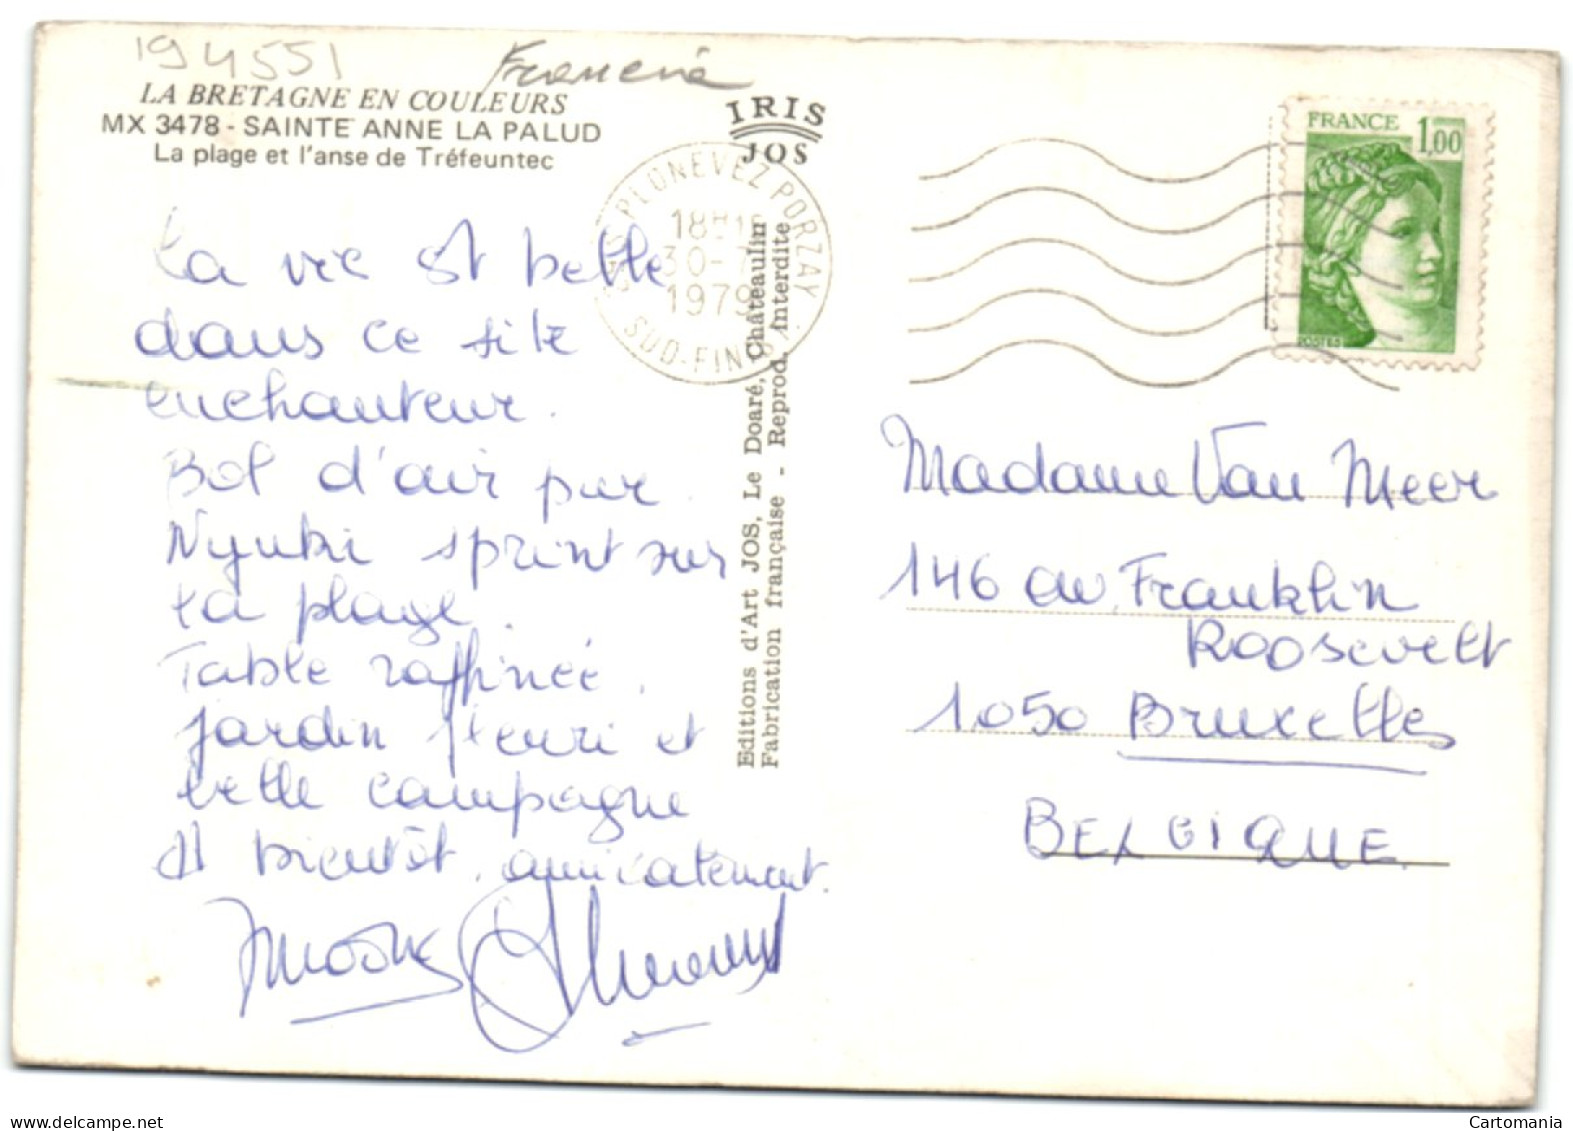 194551
Francia
LA BRETAGNE EN COULEURS
MX 3478 - SAINTE ANNE LA PALUD
La plage et l'anse de Tréfeuntec
IRIS
JOS
PLONEVEZ PORZAY
18H15
30-7
1979
SUD-FIN
FRANCE 1,00
POSTES
La vie est belle
dans ce site
enchanteur.
Bol d'air pur.
Nyuki sprint sur
la plage.
Table raffinée,
jardin fleuri et
belle campagne
A bientôt, amicalement.
Editions d'Art JOS, Le Doaré, Châteaulin
Fabrication française - Reprod. Interdite
Madame Van Meer
146 av. Franklin
Roosevelt
1050 Bruxelles
BELGIQUE
Cartomania